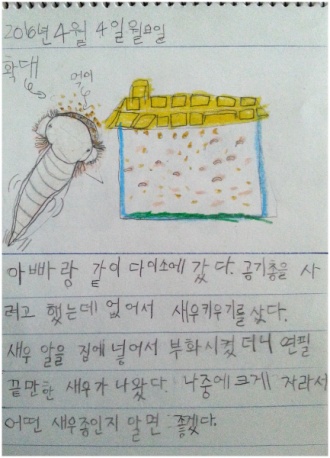 2016년 4월 4일 월요일
확대
먹이
아빠랑 같이 다이소에 갔다. 곰기총을 사
려고 했는데 없어서 새우키우기를 샀다.
새우 알을 집에 넣어서 부화시켰더니 연필
끝만한 새우가 나왔다. 나중에 크게 자라서
어떤 새우종인지 알면 좋겠다.